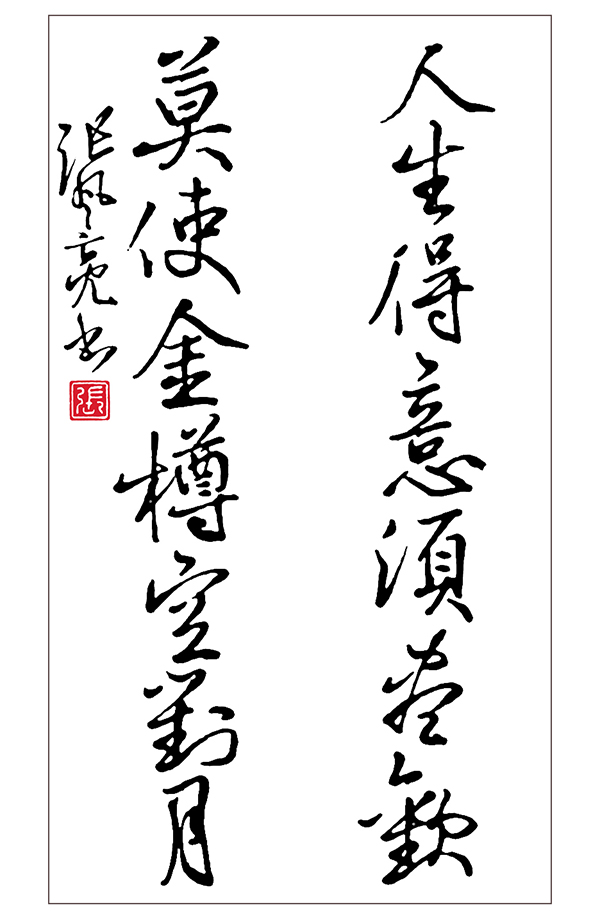 人生得意須盡歡
莫使金樽空對月
張風亮书
張